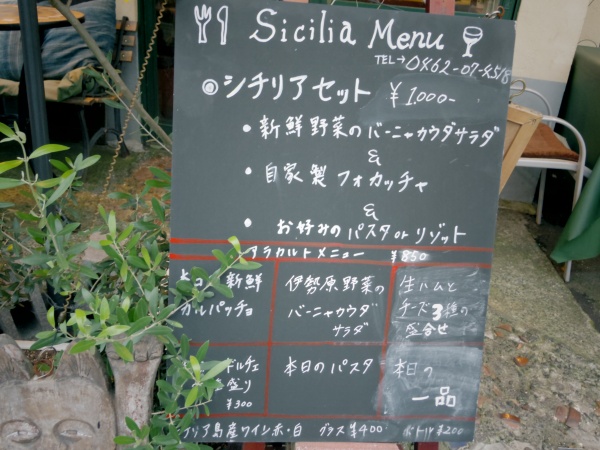 Sicilia Menu
TEL→0462-07-4518
◎シチリアセット ¥1,000-
・新鮮野菜のバーニャカウダサラダ
&
・自家製フォカッチャ
&
・お好みのパスタorリゾット
アラカルトメニュー ¥850
新鮮
カルパッチョ
伊勢原野菜の
バーニャカウダ
サラダ
生ハムと
チーズ3種の
盛合せ
ドルチェ
盛り
¥300
本日のパスタ
本日の
一品
リア島産ワイン赤・白 グラス¥400 ボトル¥200